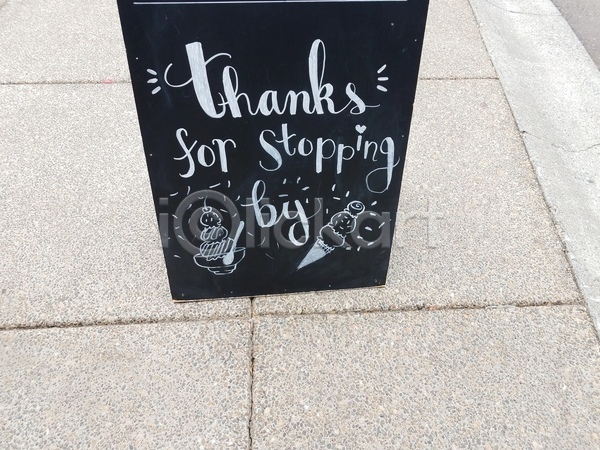 thanks
for stopping
by